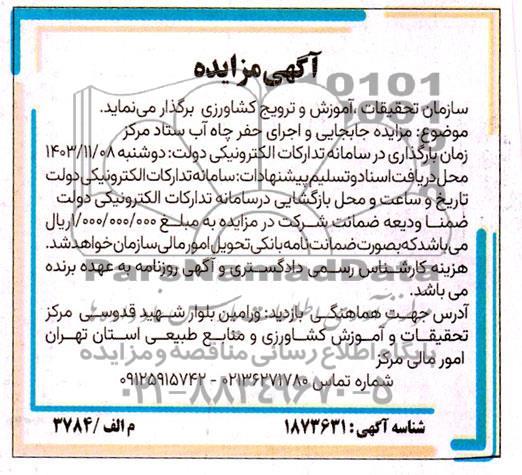 آگهی مزایده
سازمان تحقیقات ،آموزش و ترویج کشاورزی برگذار می‌نماید.
موضوع: مزایده جابجایی و اجرای حفر چاه آب ستاد مرکز
زمان بارگذاری در سامانه تدارکات الکترونیکی دولت: دوشنبه ۱۴۰۳/۱۱/۰۸
محل دریافت اسناد و تسلیم پیشنهادات: سامانه تدارکات الکترونیکی دولت
تاریخ و ساعت و محل بازگشایی درسامانه تدارکات الکترونیکی دولت
ضمنا ودیعه ضمانت شرکت در مزایده به مبلغ ۱/۰۰۰/۰۰۰/۰۰۰ ریال
می‌باشد که بصورت ضمانت نامه بانکی تحویل امور مالی سازمان خواهد شد.
هزینه کارشناس رسمی دادگستری و آگهی روزنامه به عهده برنده
می باشد.
آدرس جهت هماهنگی بازدید: ورامین بلوار شهید قدوسی مرکز
تحقیقات و آموزش کشاورزی و منابع طبیعی استان تهران
امور مالی مرکز
شماره تماس ۰۲۱۳۶۲۷۱۷۸۰ - ۰۹۱۲۵۹۱۵۷۴۲
شناسه آگهی: ۱۸۷۳۶۳۱ م الف /۳۷۸۴
ParsNamadData
پایگاه اطلاع رسانی مناقصه و مزایده
۰۲۱-۸۸۳۴۹۶۷۰-۵